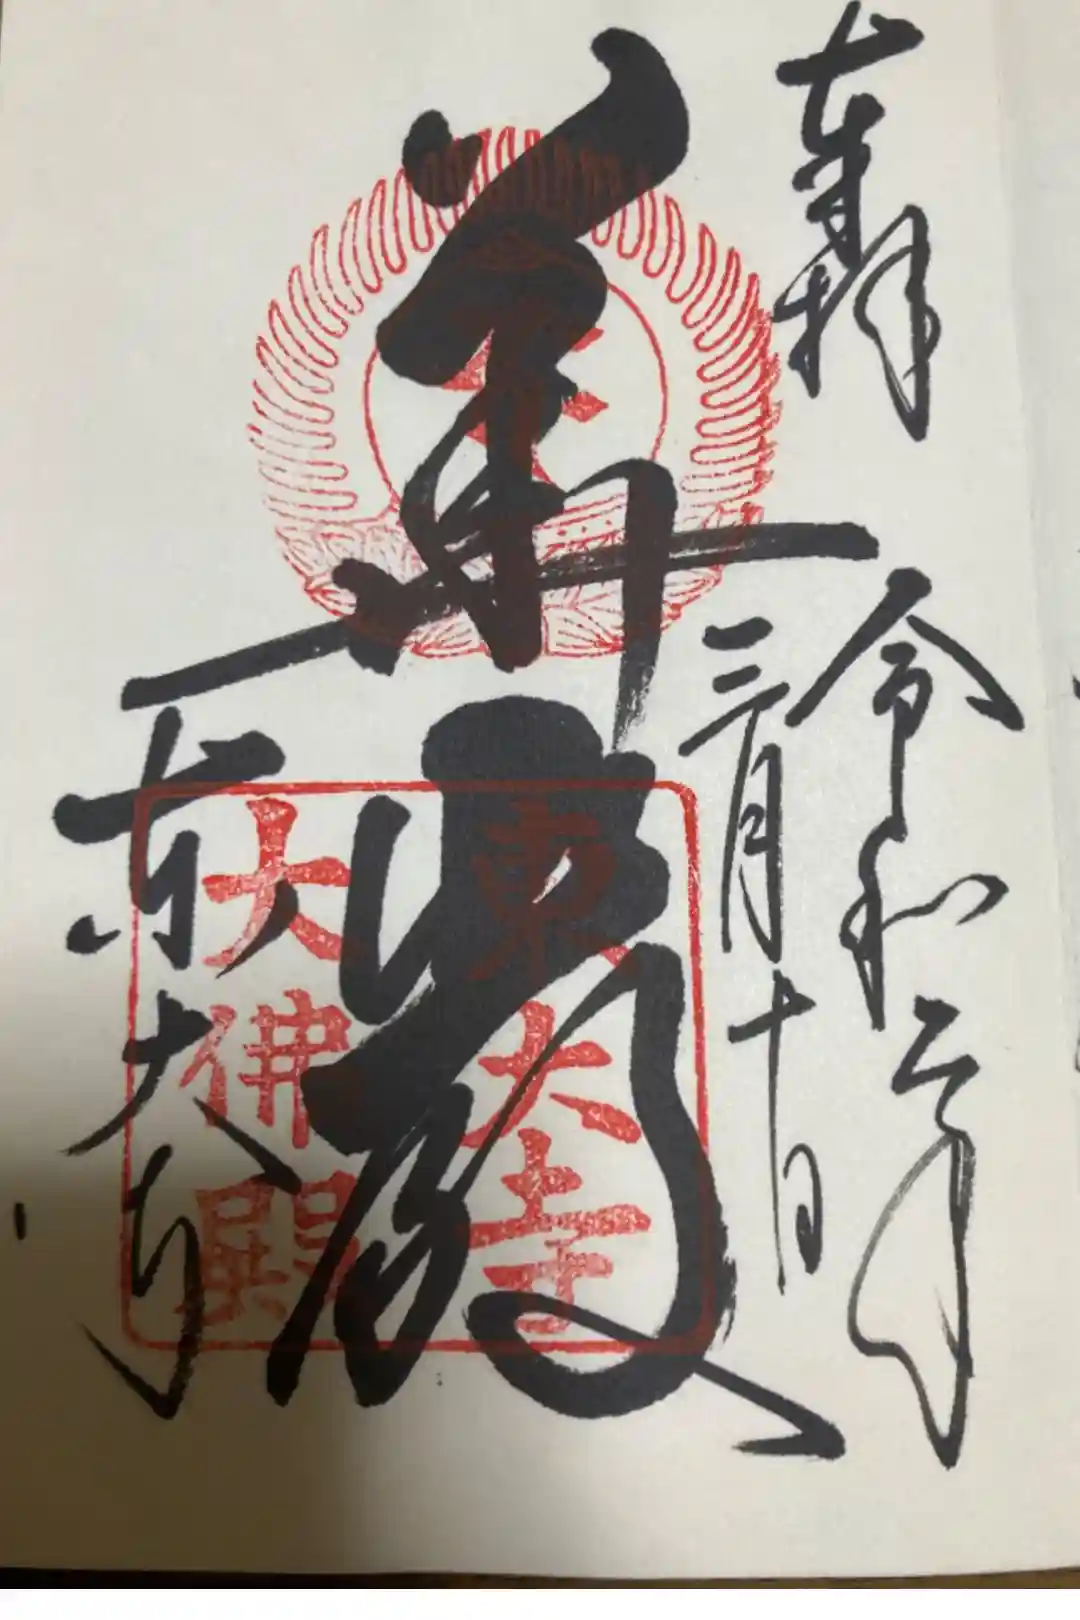 奉拝
令和二年
三月十日
華厳
東大寺
東大寺
大佛殿